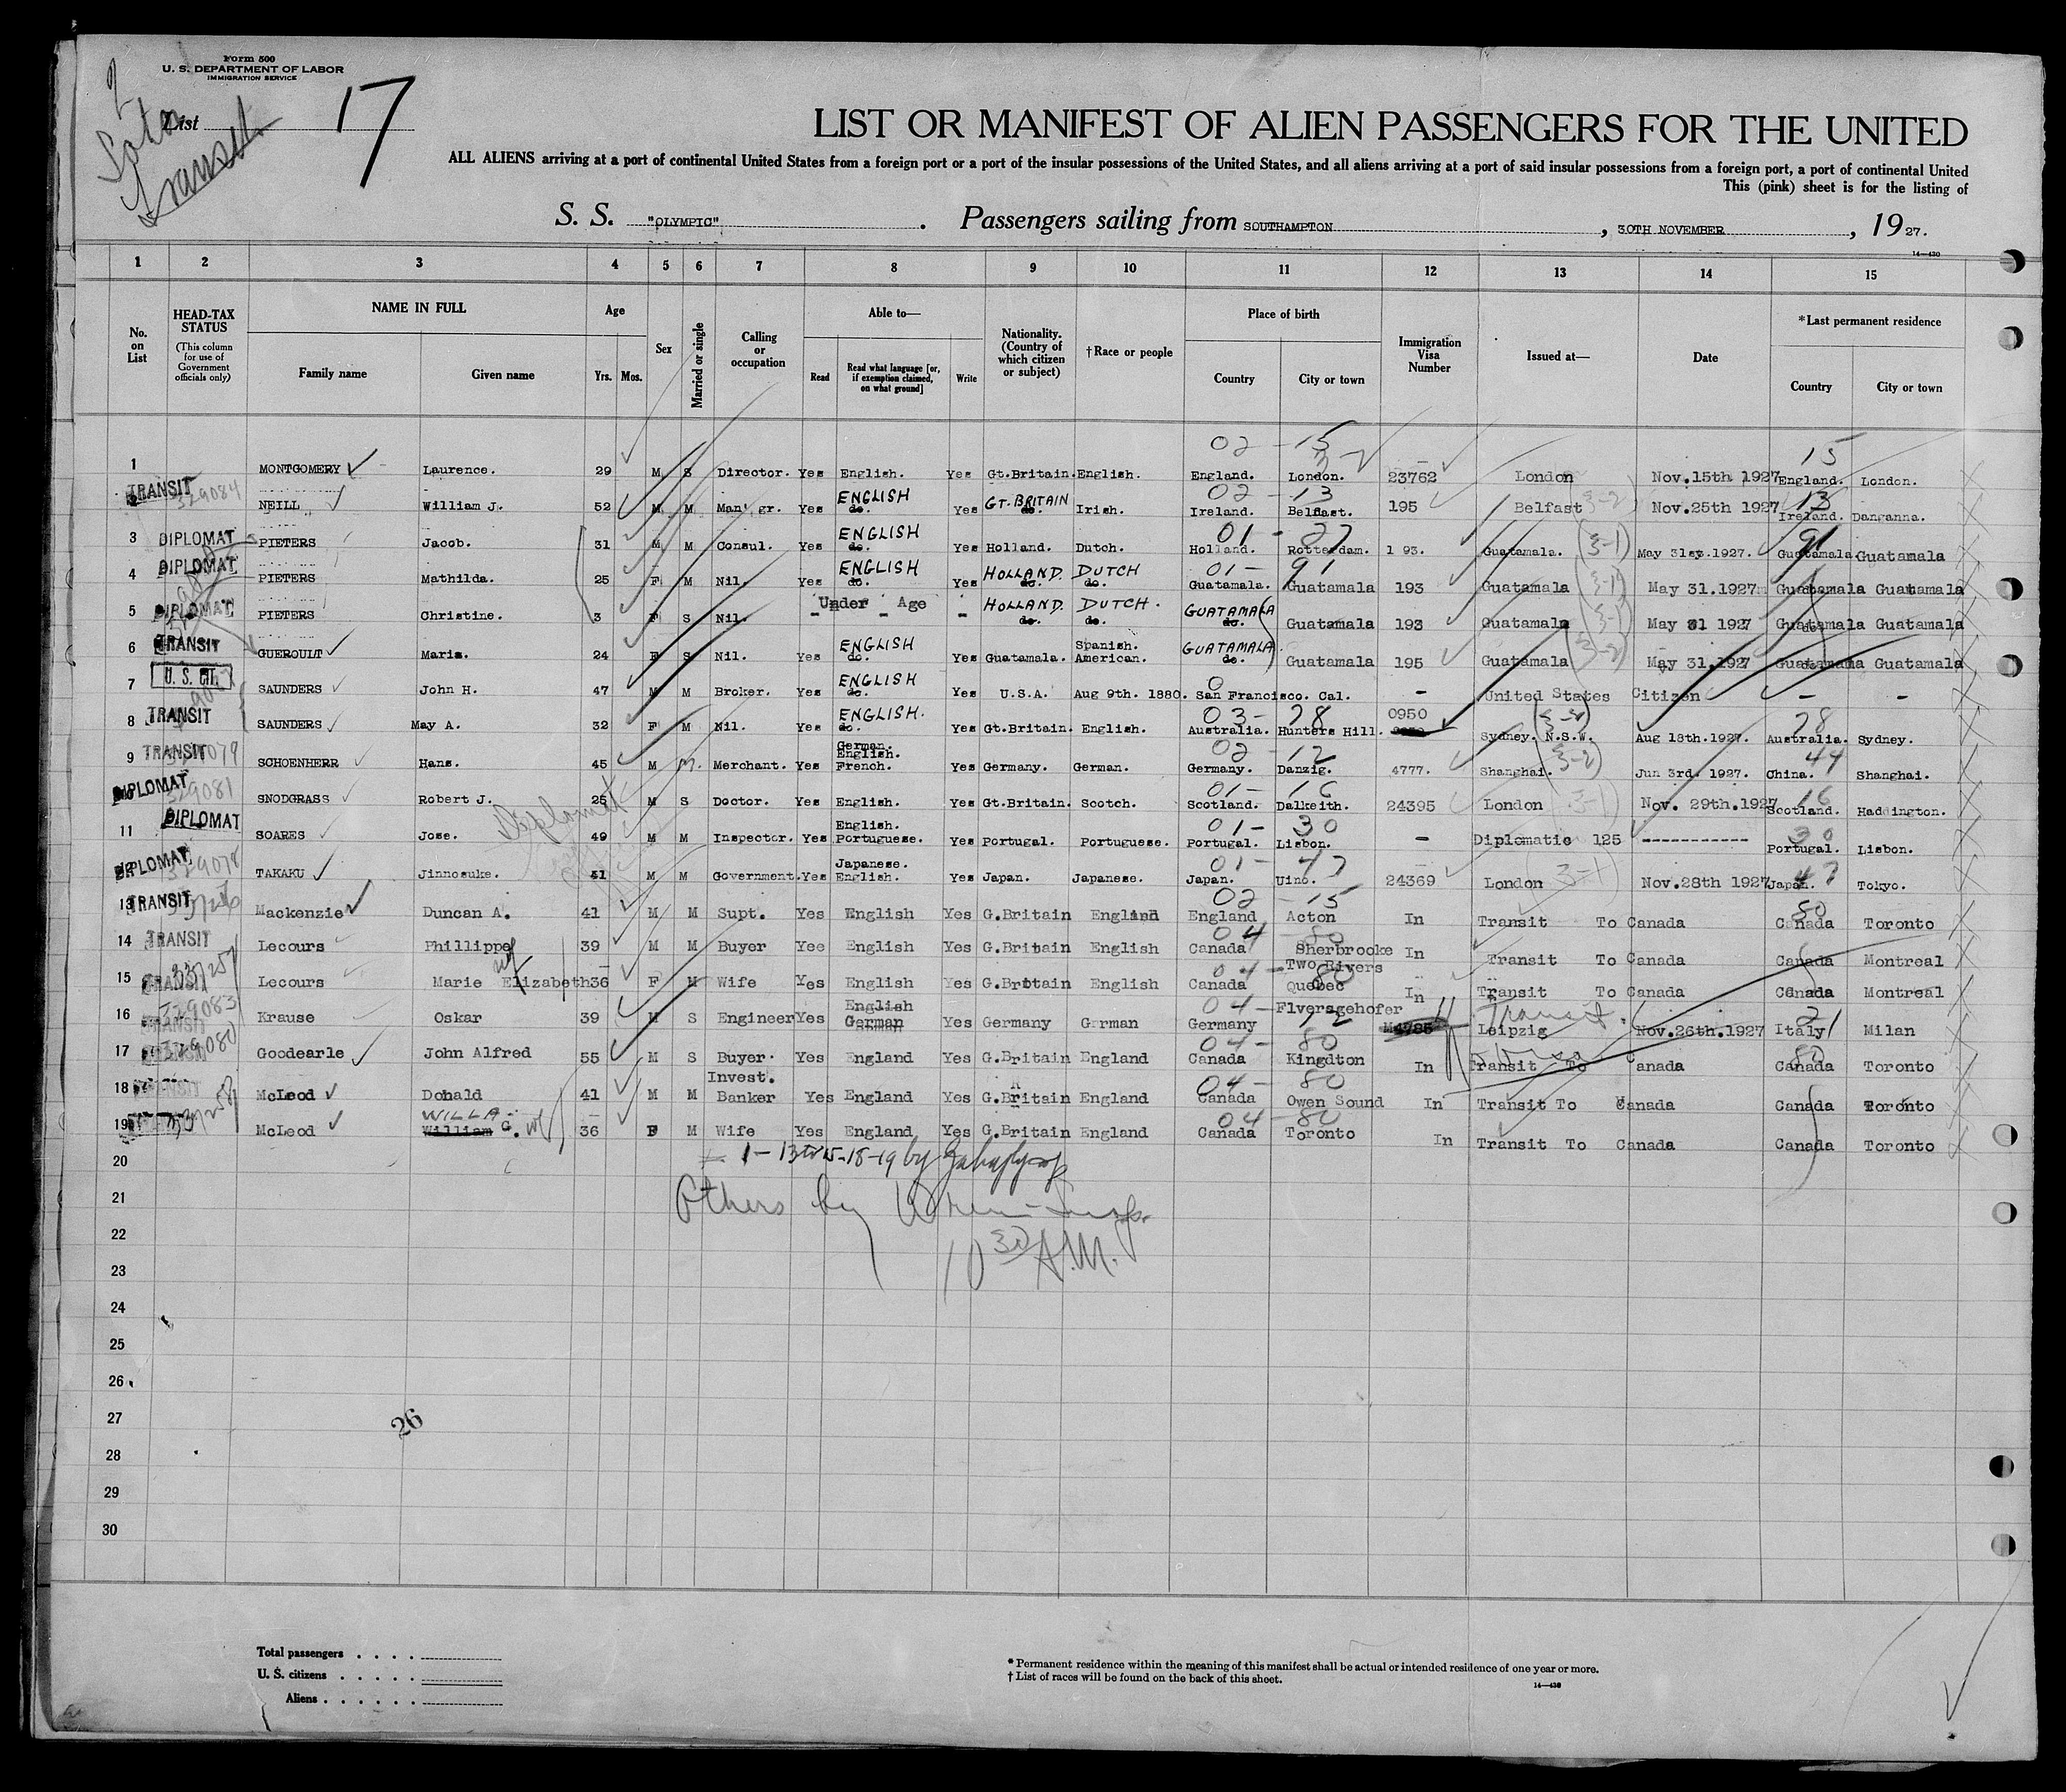 Form 500
U. S. DEPARTMENT OF LABOR
IMMIGRATION SERVICE
List 17
LIST OR MANIFEST OF ALIEN PASSENGERS FOR THE UNITED
ALL ALIENS arriving at a port of continental United States from a foreign port or a port of the insular possessions of the United States, and all aliens arriving at a port of said insular possessions from a foreign port, a port of continental United
This (pink) sheet is for the listing of
S. S. "OLYMPIC". Passengers sailing from SOUTHAMPTON, 30TH NOVEMBER, 1927.
14—430
1 2 3 4 5 6 7 8 9 10 11 12 13 14 15
No. on List
HEAD-TAX STATUS (This column for use of Government officials only)
NAME IN FULL
Family name Given name
Age
Yrs. Mos.
Sex
Married or single
Calling or occupation
Able to—
Read Read what language [or, if exemption claimed, on what ground] Write
Nationality. (Country of which citizen or subject)
†Race or people
Place of birth
Country City or town
Immigration Visa Number
Issued at—
Date
*Last permanent residence
Country City or town
02 - 15 15
1 MONTGOMERY Laurence. 29 M S Director. Yes English. Yes Gt.Britain. English. England. London. 23762 London Nov.15th 1927 England. London.
02 - 13 13
TRANSIT 329084 NEILL William J. 52 M M Man'gr. Yes ENGLISH do. Yes GT. BRITAIN do. Irish. Ireland. Belfast. 195 Belfast (3-2) Nov.25th 1927 Ireland. Danganna.
01 - 27 91
3 DIPLOMAT PIETERS Jacob. 31 M M Consul. Yes ENGLISH do. Yes Holland. Dutch. Holland. Rotterdam. 1 93. Guatamala. (3-1) May 31st.1927. Guatamala Guatamala
01 - 91
4 DIPLOMAT PIETERS Mathilda. 25 F M Nil. Yes ENGLISH do. Yes HOLLAND. do. DUTCH do. Guatamala. Guatamala 193 Guatamala (3-1) May 31.1927 Guatamala Guatamala
5 DIPLOMAT PIETERS Christine. 3 F S Nil. - Under - Age - HOLLAND. do. DUTCH. do. GUATAMALA do. Guatamala 193 Guatamala (3-1) May 31 1927 Guatamala Guatamala
6 TRANSIT GUEROULT Maria. 24 F S Nil. Yes ENGLISH do. Yes Guatamala. Spanish. American. GUATAMALA. do. Guatamala 195 Guatamala (3-2) May 31.1927 Guatamala Guatamala
7 U. S. CIT. SAUNDERS John H. 47 M M Broker. Yes ENGLISH do. Yes U.S.A. Aug 9th. 1880. San Francisco. Cal. - United States Citizen - -
03 - 78 78
8 TRANSIT SAUNDERS May A. 32 F M Nil. Yes ENGLISH. do. Yes Gt.Britain. English. Australia. Hunters Hill. 0950 Sydney. N.S.W. Aug 18th.1927. Australia. Sydney.
02 - 12 44
9 TRANSIT SCHOENHERR Hans. 45 M M. Merchant. Yes German. English. French. Yes Germany. German. Germany. Danzig. 4777. Shanghai. (3-2) Jun 3rd. 1927. China. Shanghai.
01 - 16 16
DIPLOMAT 329081 SNODGRASS Robert J. 25 M S Doctor. Yes English. Yes Gt.Britain. Scotch. Scotland. Dalkeith. 24395 London (3-1) Nov. 29th.1927 Scotland. Haddington.
Diplomat
01 - 30 30
11 DIPLOMAT SOARES Jose. 49 M M Inspector. Yes English. Portuguese. Yes Portugal. Portuguese. Portugal. Lisbon. - Diplomatic 125 ----------- Portugal. Lisbon.
01 - 47 47
DIPLOMAT 329078 TAKAKU Jinnosuke. 41 M M Government. Yes Japanese. English. Yes Japan. Japanese. Japan. Uino. 24369 London (3-1) Nov.28th 1927 Japan. Tokyo.
02 - 15 80
13 TRANSIT Mackenzie Duncan A. 41 M M Supt. Yes English Yes G.Britain England Acton In Transit To Canada Canada Toronto
04 - 80
14 TRANSIT Lecours Phillippe 39 M M Buyer Yee English Yes G.Britain English Canada Sherbrooke In Transit To Canada Canada Montreal
04 - 80
15 TRANSIT Lecours Marie Elizabeth wf 36 F M Wife Yes English Yes G.Britain English Canada Two Rivers Quebec In Transit To Canada Canada Montreal
04 - 12 21
16 329083 TRANSIT Krause Oskar 39 M S Engineer Yes English German Yes Germany Grman Germany Flversgehofer M4785 Leipzig Transit Nov.26th.1927 Italy Milan
04 - 80 80
17 329080 Goodearle John Alfred 55 M S Buyer. Yes England Yes G.Britain England Canada Kingdton In Transit To Canada Canada Toronto
04 - 80
18 McLeod Donald 41 M M Invest. Banker Yes England Yes G.Britain England Canada Owen Sound In Transit To Canada Canada Toronto
04 - 80
19 McLeod WILLA William G. wf 36 F M Wife Yes England Yes G.Britain England Canada Toronto In Transit To Canada Canada Toronto
20 1-13 to 15-18-19 by
21 Others by Insp.
22 10 30 A.M.
23
24
25
26
27 26
28
29
30
Total passengers . . . .
U. S. citizens . . . . .
Aliens . . . . . .
* Permanent residence within the meaning of this manifest shall be actual or intended residence of one year or more.
† List of races will be found on the back of this sheet.
14—430